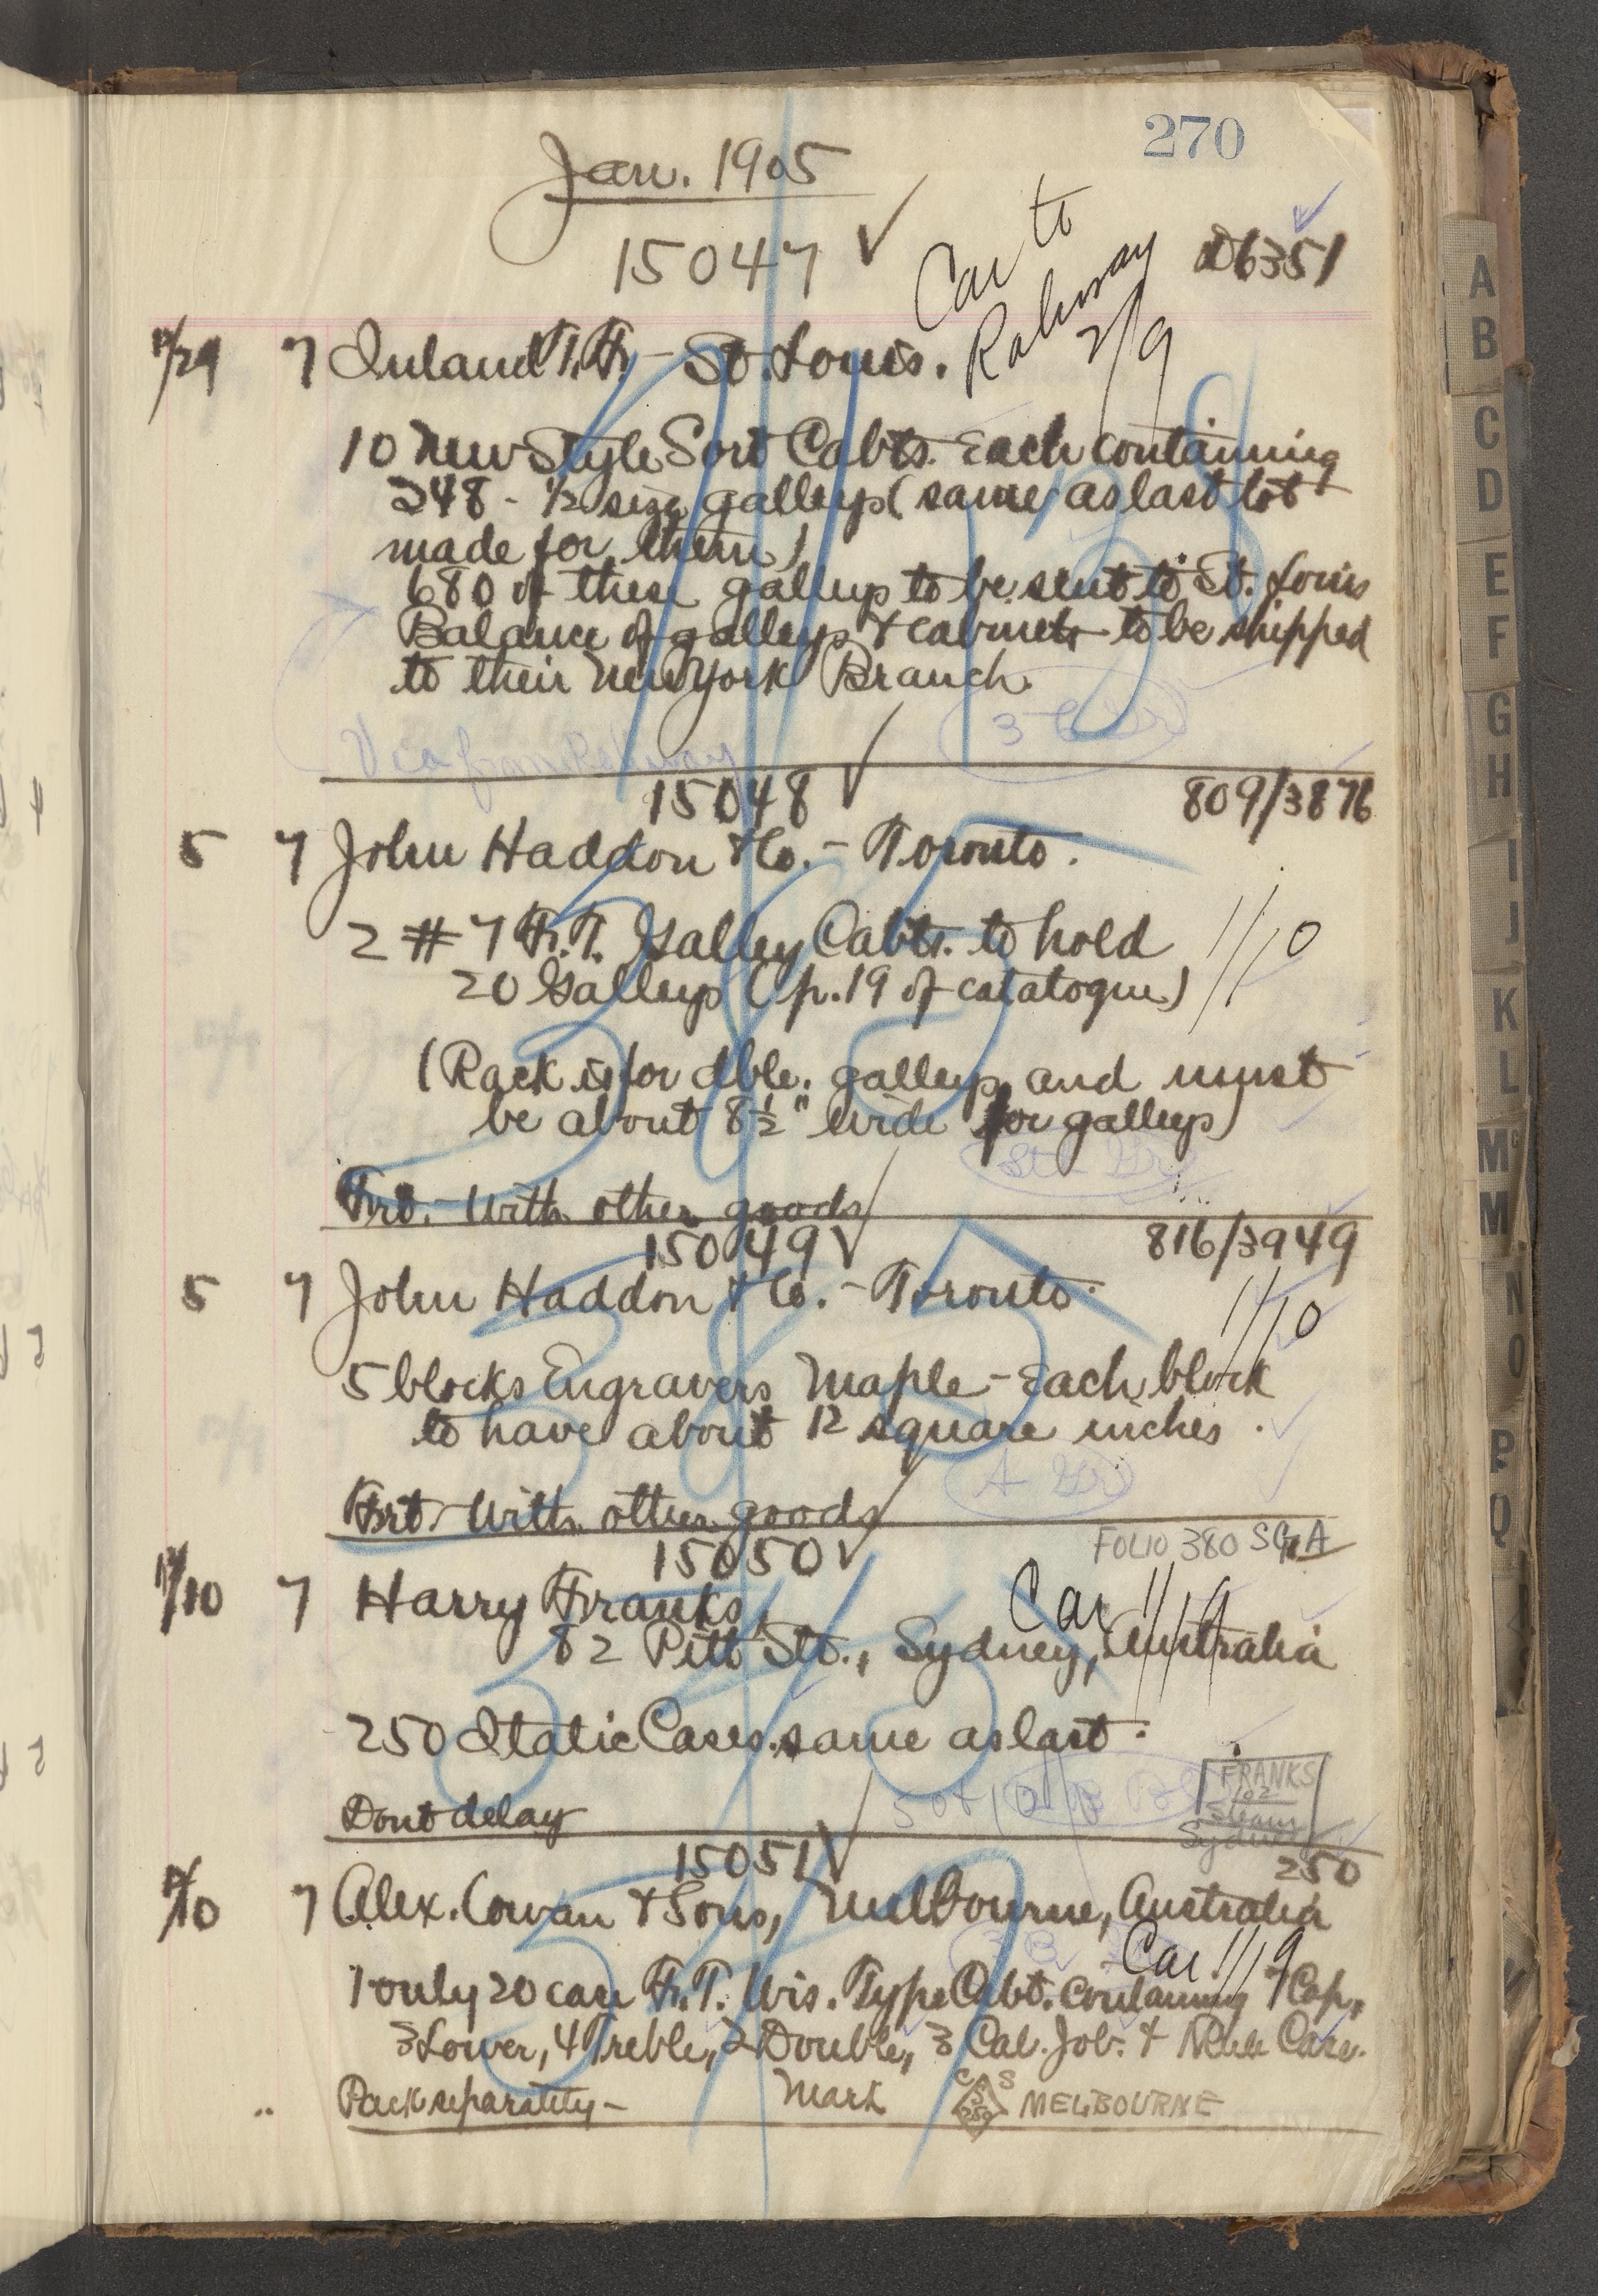 270
Jan. 1905
15047 ✓
Car to
Rahway
2/9
D6351
12/29 7 Inland T. F. - St. Louis.
10 New Style Sort Cabts. Each containing
248 - 1/2 size galleys (same as last lot
made for them)
680 of these galleys to be sent to St. Louis
Balance of galleys & cabinets to be shipped
to their New York Branch.
Via from Rahway
15048 ✓ 809/3876
5 7 John Haddon & Co. - Toronto.
2 # 7 F. T. Galley Cabts. to hold
20 Galleys (p. 19 of catalogue)
1/10
(Rack is for dble. galleys and must
be about 8 1/2" wide for galleys)
Frt. - With other goods
15049 ✓ 816/3949
5 7 John Haddon & Co. - Toronto.
1/10
5 blocks Engravers Maple - Each block
to have about 12 square inches.
Frt. - With other goods
15050 ✓ FOLIO 380
12/10 7 Harry Franks,
Car 1/19
82 Pitt St., Sydney, Australia
250 Italic Cases. same as last.
Dont delay
FRANKS
Sydney
15051 ✓ 250
12/10 7 Alex. Cowan & Sons, Melbourne, Australia
Car 1/19
1 only 20 case F. T. Wis. Type Cabt. containing 7 Cap,
3 Lower, 4 Treble, 2 Double, 3 Cal. Job. & Blank Case.
Pack separately - Mark C S MELBOURNE
A
B
C
D
E
F
G
H
I
J
K
L
Mc
M
N
O
P
Q